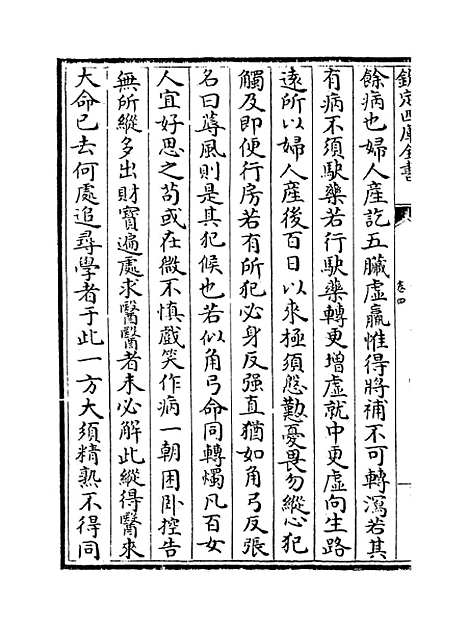 欽定四庫全書
卷四
餘病也婦人産訖五臟虚羸惟得將補不可轉瀉若其
有病不須駃藥若行駃藥轉更增虚就中更虚向生路
逺所以婦人産後百日以來極須慇懃憂畏勿縱心犯
觸及即便行房若有所犯必身反强直猶如角弓反張
名曰蓐風則是其犯候也若似角弓命同轉燭凡百女
人宜好思之苟或在微不慎戲笑作病一朝困卧控告
無所縱多出財寶遍處求醫醫者未必解此縱得醫來
大命已去何處追尋學者于此一方大須精熟不得同